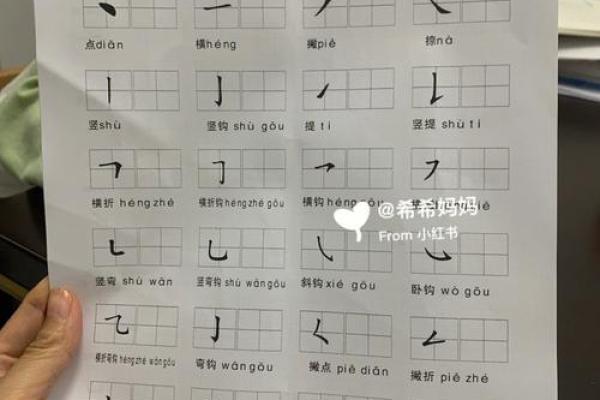 点diǎn 横héng 撇piě 捺nà
竖shù 竖钩 shù gōu 提 tí 竖提 shù tí
横折 héng zhé 横折钩 héng zhé gōu 横钩
@希希妈妈
From 小红书
竖弯 shù wān 竖弯钩 shù wān gōu 斜钩 xié gōu 卧钩 wò gōu
横折弯钩 héng zhé wān gōu 弯钩 wān gōu 撇点 piě diǎn 撇折 piě zhé